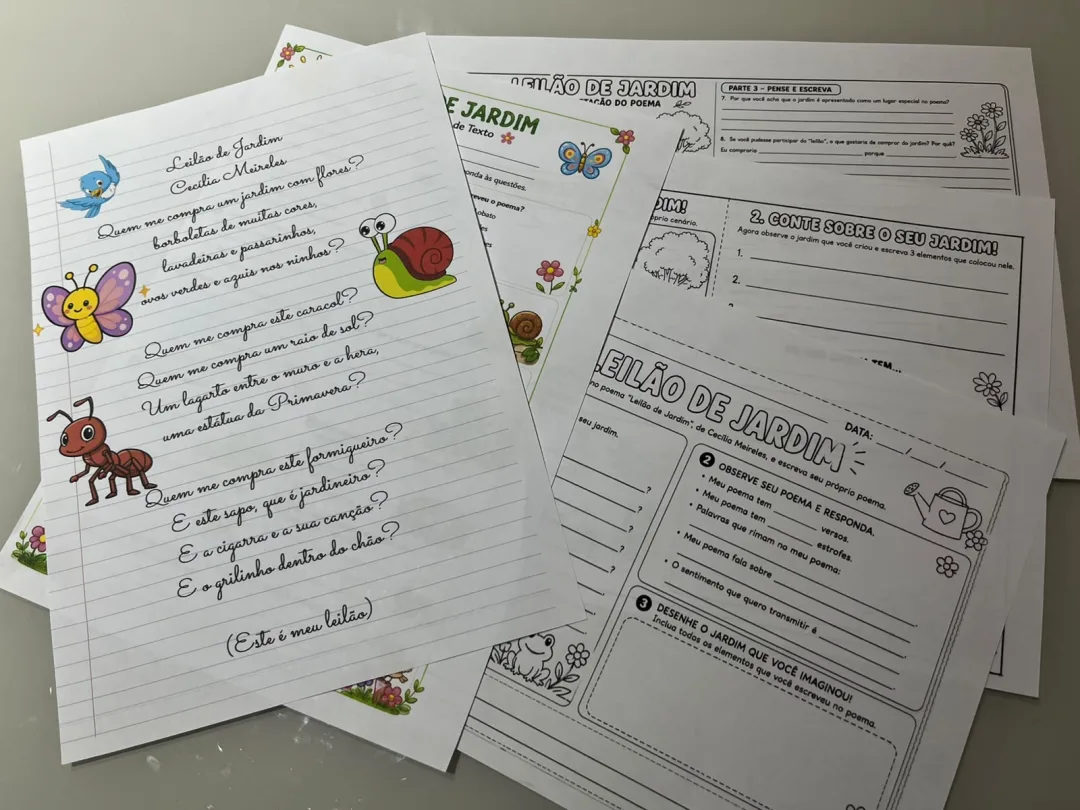 Leilão de Jardim
Cecília Meireles
Quem me compra um jardim com flores?
borboletas de muitas cores,
lavadeiras e passarinhos,
ovos verdes e azuis nos ninhos?
Quem me compra este caracol?
Quem me compra um raio de sol?
Um lagarto entre o muro e a hera,
uma estátua da Primavera?
Quem me compra este formigueiro?
E este sapo, que é jardineiro?
E a cigarra e a sua canção?
E o grilinho dentro do chão?
(Este é meu leilão)
E JARDIM
de Texto
onda às questões.
reveu o poema?
obato
es
es
LEILÃO DE JARDIM
TAÇÃO DO POEMA
PARTE 3 – PENSE E ESCREVA
7. Por que você acha que o jardim é apresentado como um lugar especial no poema?
8. Se você pudesse participar do "leilão", o que gostaria de comprar do jardim? Por quê?
Eu compraria porque
DIM!
óprio cenário.
2. CONTE SOBRE O SEU JARDIM!
Agora observe o jardim que você criou e escreva 3 elementos que colocou nele.
1.
2.
TEM...
LEILÃO DE JARDIM
DATA: / /
no poema "Leilão de Jardim", de Cecília Meireles, e escreva seu próprio poema.
seu jardim.
?
?
?
?
?
2 OBSERVE SEU POEMA E RESPONDA.
• Meu poema tem versos.
• Meu poema tem estrofes.
• Palavras que rimam no meu poema:
• Meu poema fala sobre
• O sentimento que quero transmitir é
3 DESENHE O JARDIM QUE VOCÊ IMAGINOU!
Inclua todos os elementos que você escreveu no poema.